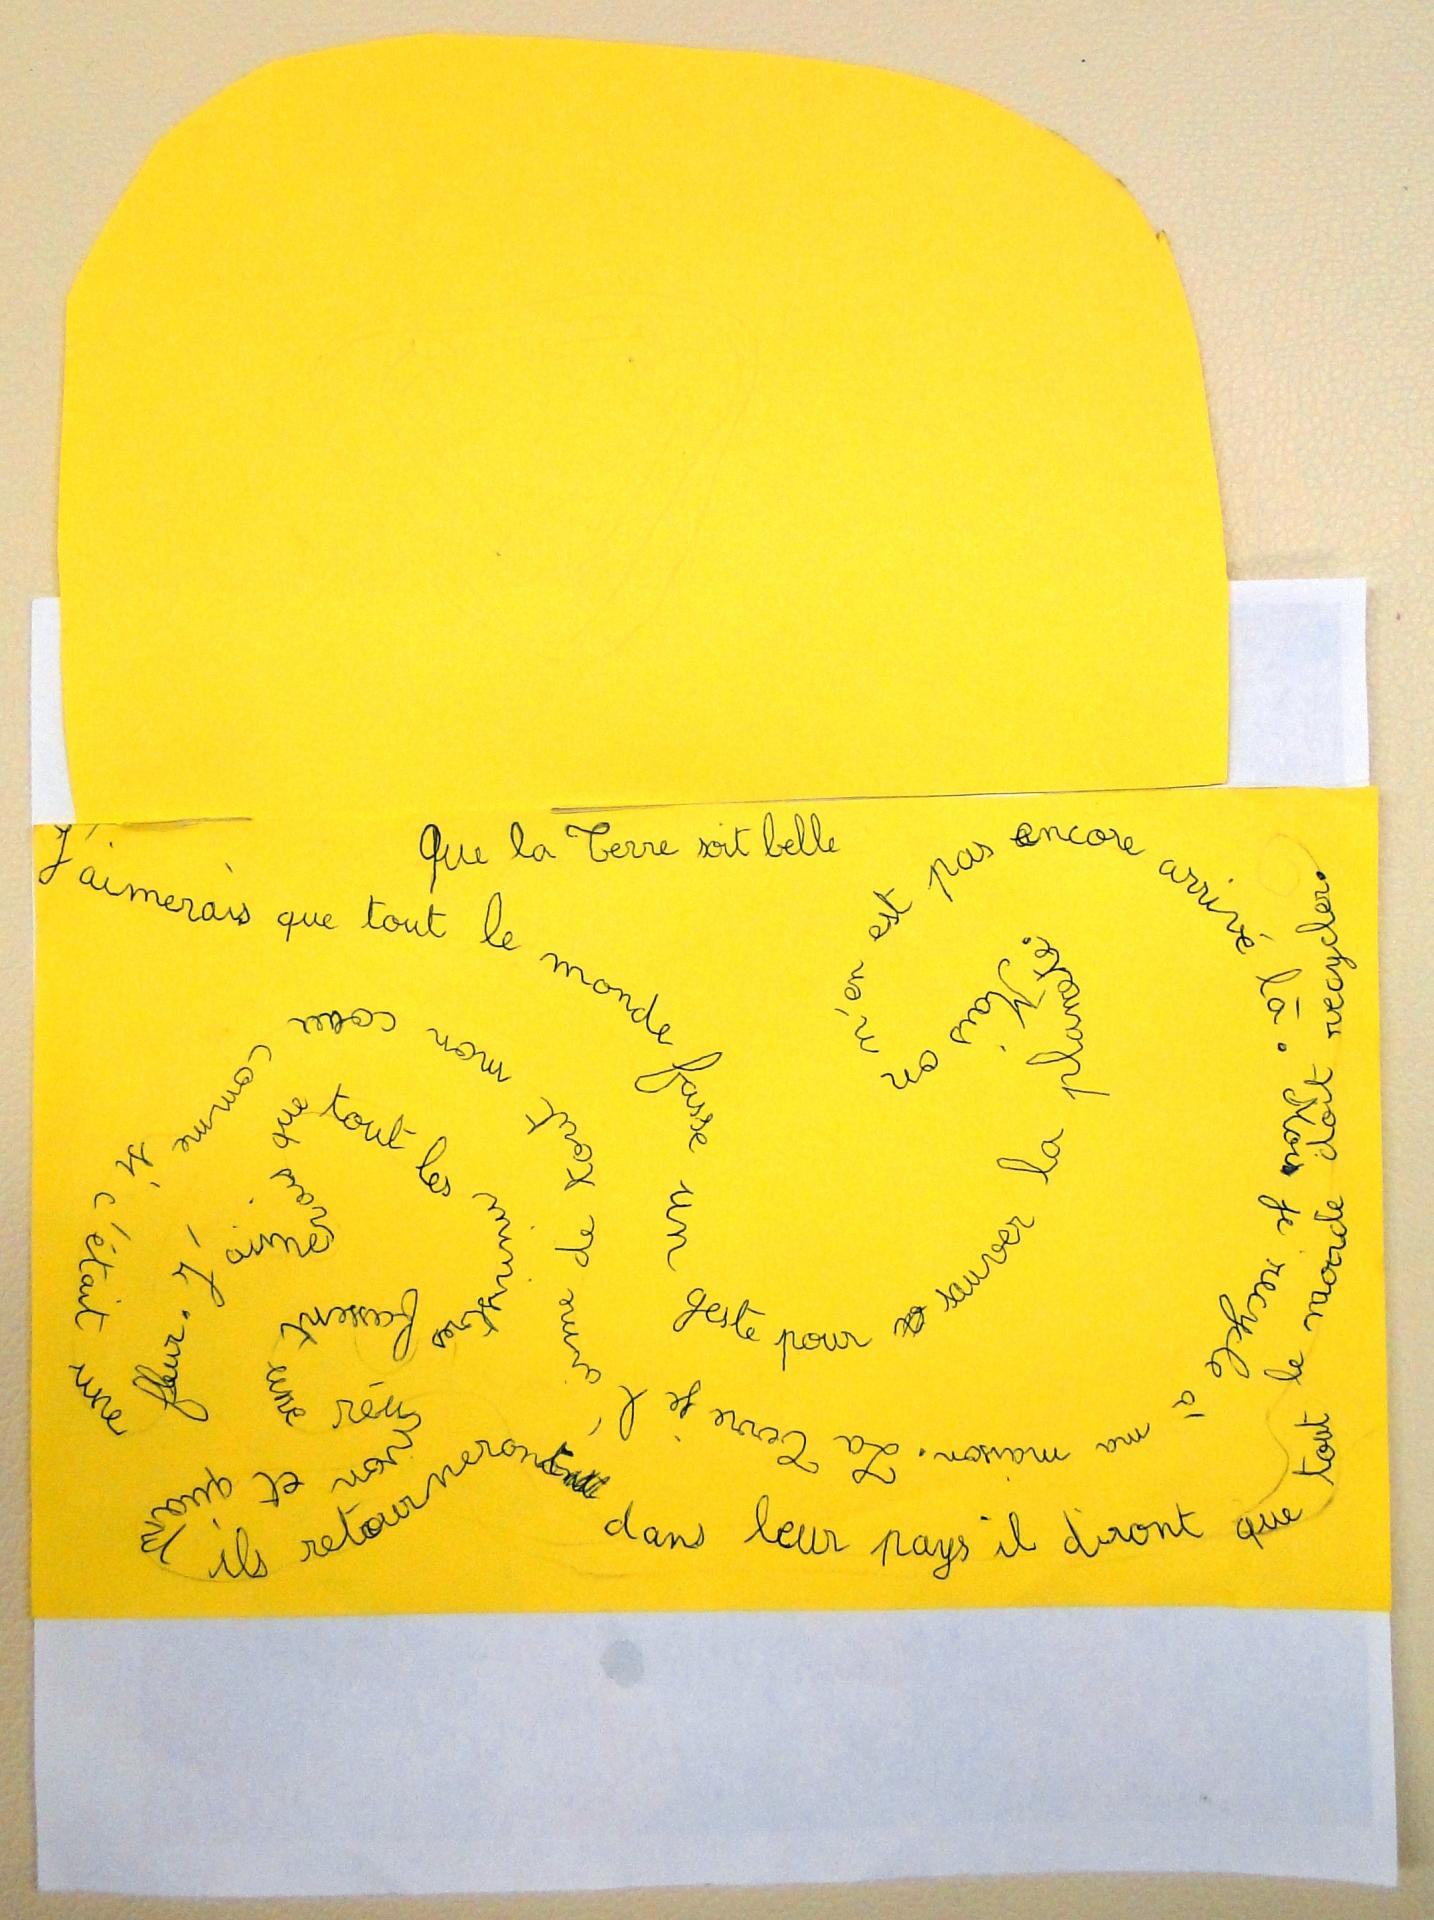 Que la Terre soit belle
J'aimerais que tout le monde fasse un geste pour sauver la planète. Mais on n'en est pas encore arrivé là. Moi je recycle à ma maison. La Terre je l'aime de tout mon coeur comme si c'était une fleur. J'aimerais que tout les ministres fassent une réunion et quand ils retourneront dans leur pays il diront que tout le monde doit recycler.